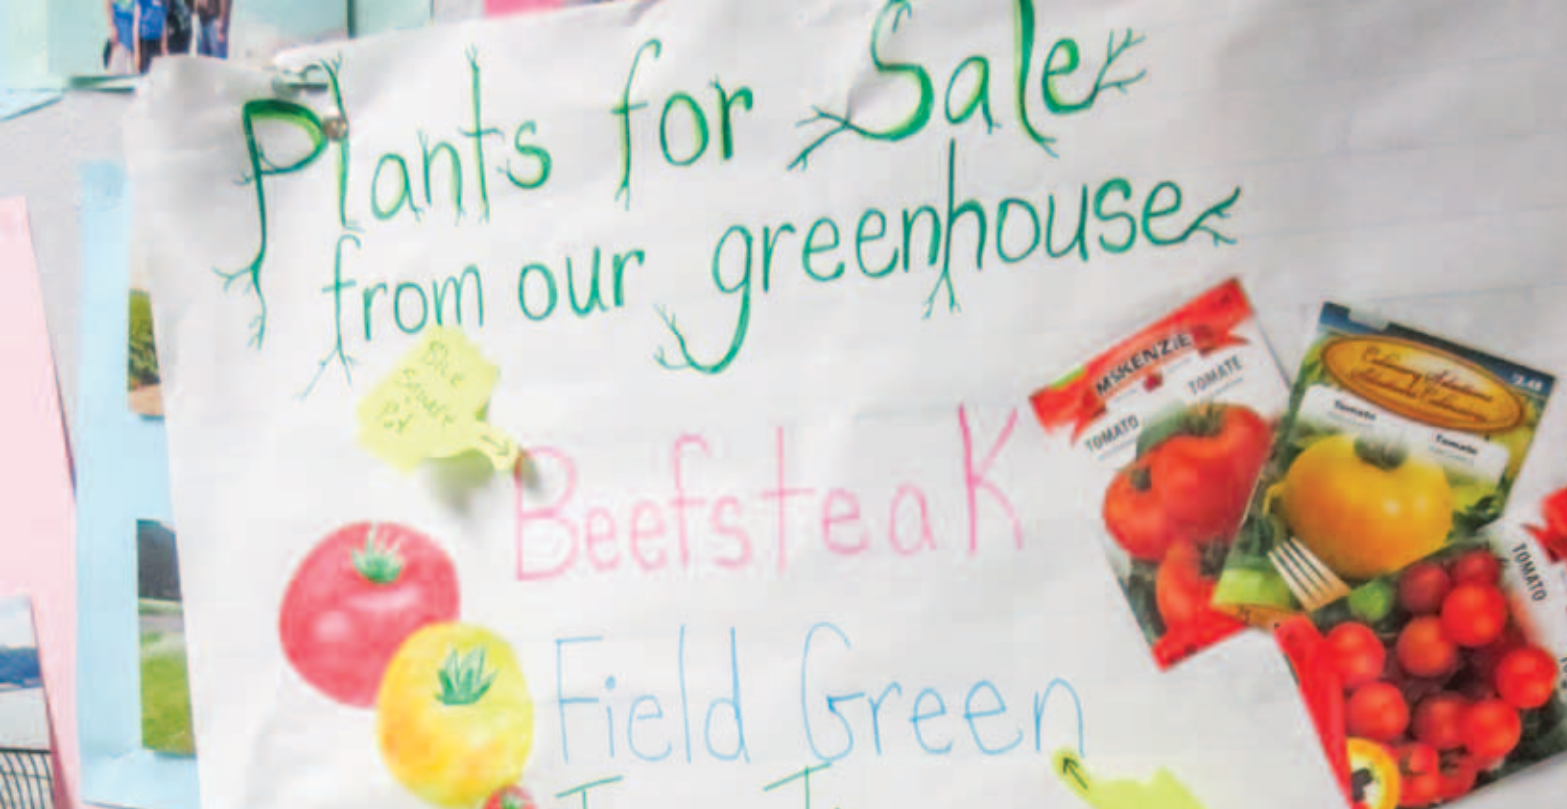 Plants for Sale
from our greenhouse
Blue
square
Beefsteak
Field Green
MSKENZIE
TOMATO TOMATE
$2.49
Tomato Tomate
TOMATO